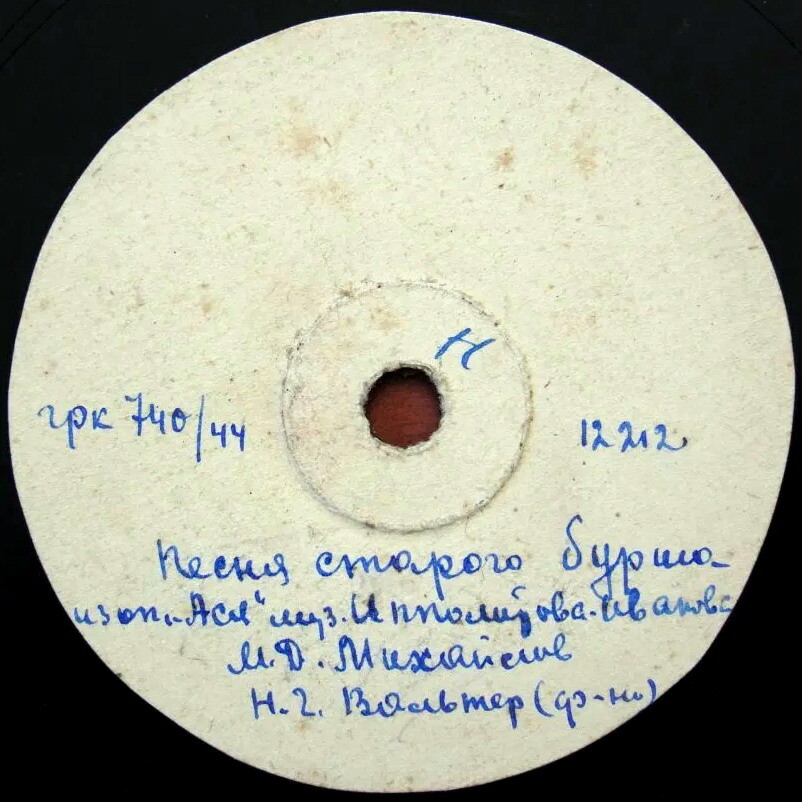 Н
грк 740/44 12212
Песня старого бурша-
из оп. "Ася" муз. Ипполитова-Иванова
М.Д. Михайлов
Н.Г. Вальтер (ф-но)